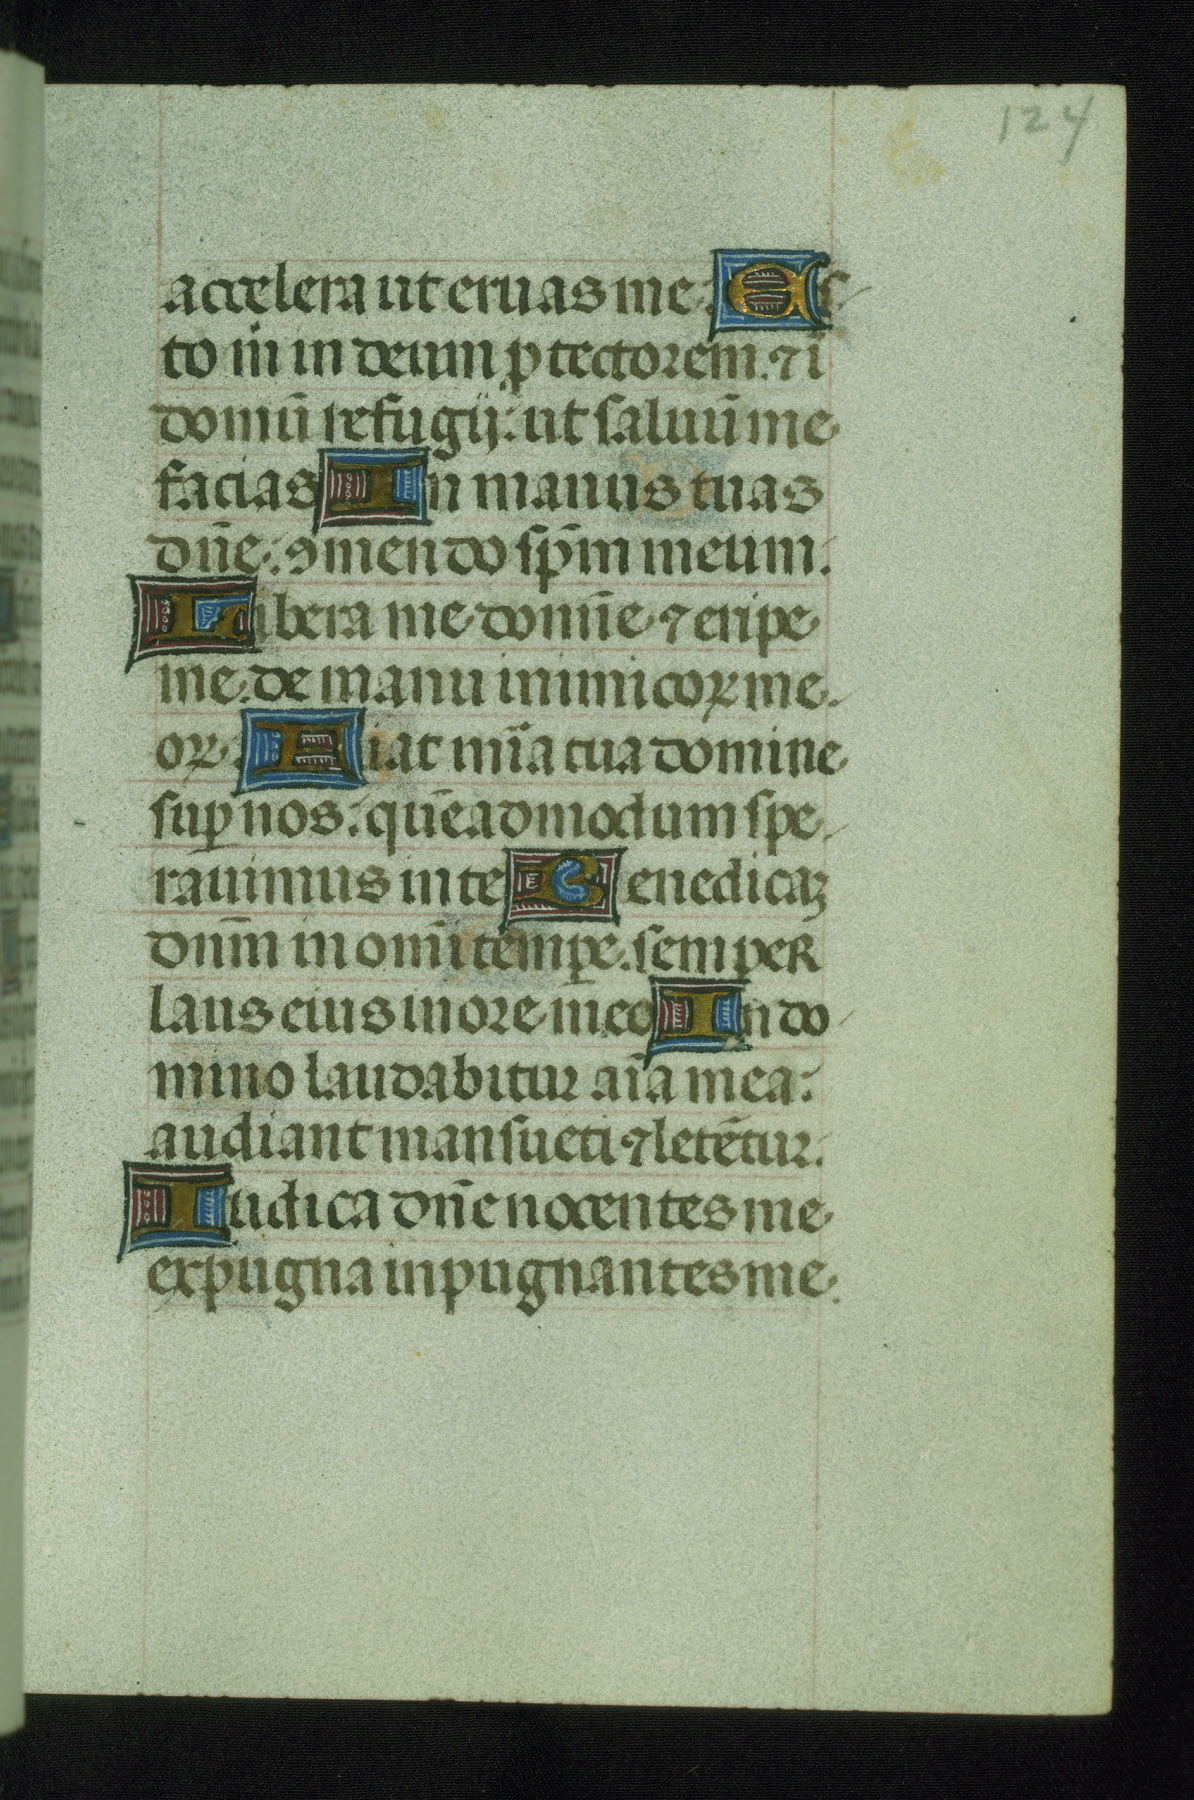 124
accelera ut eruas me: Es
to m̄ in deum ꝓtectorem. ⁊ ī
domū refugij: ut saluū me
facias In manus tuas
dn̄e: ꝯmendo sp̄m meum.
Libera me domīe ⁊ eripe
me de manu inimicoꝝ me
oꝝ. Fiat mīa tua domine
suꝑ nos: quēadmodum spe
rauimus in te Benedicaꝫ
dnm̄ in omī temꝑe. semper
laus eius in ore meo In do
mino laudabitur aīa mea:
audiant mansueti ⁊ letētur.
Iudica dn̄e nocentes me
expugna inpugnantes me.